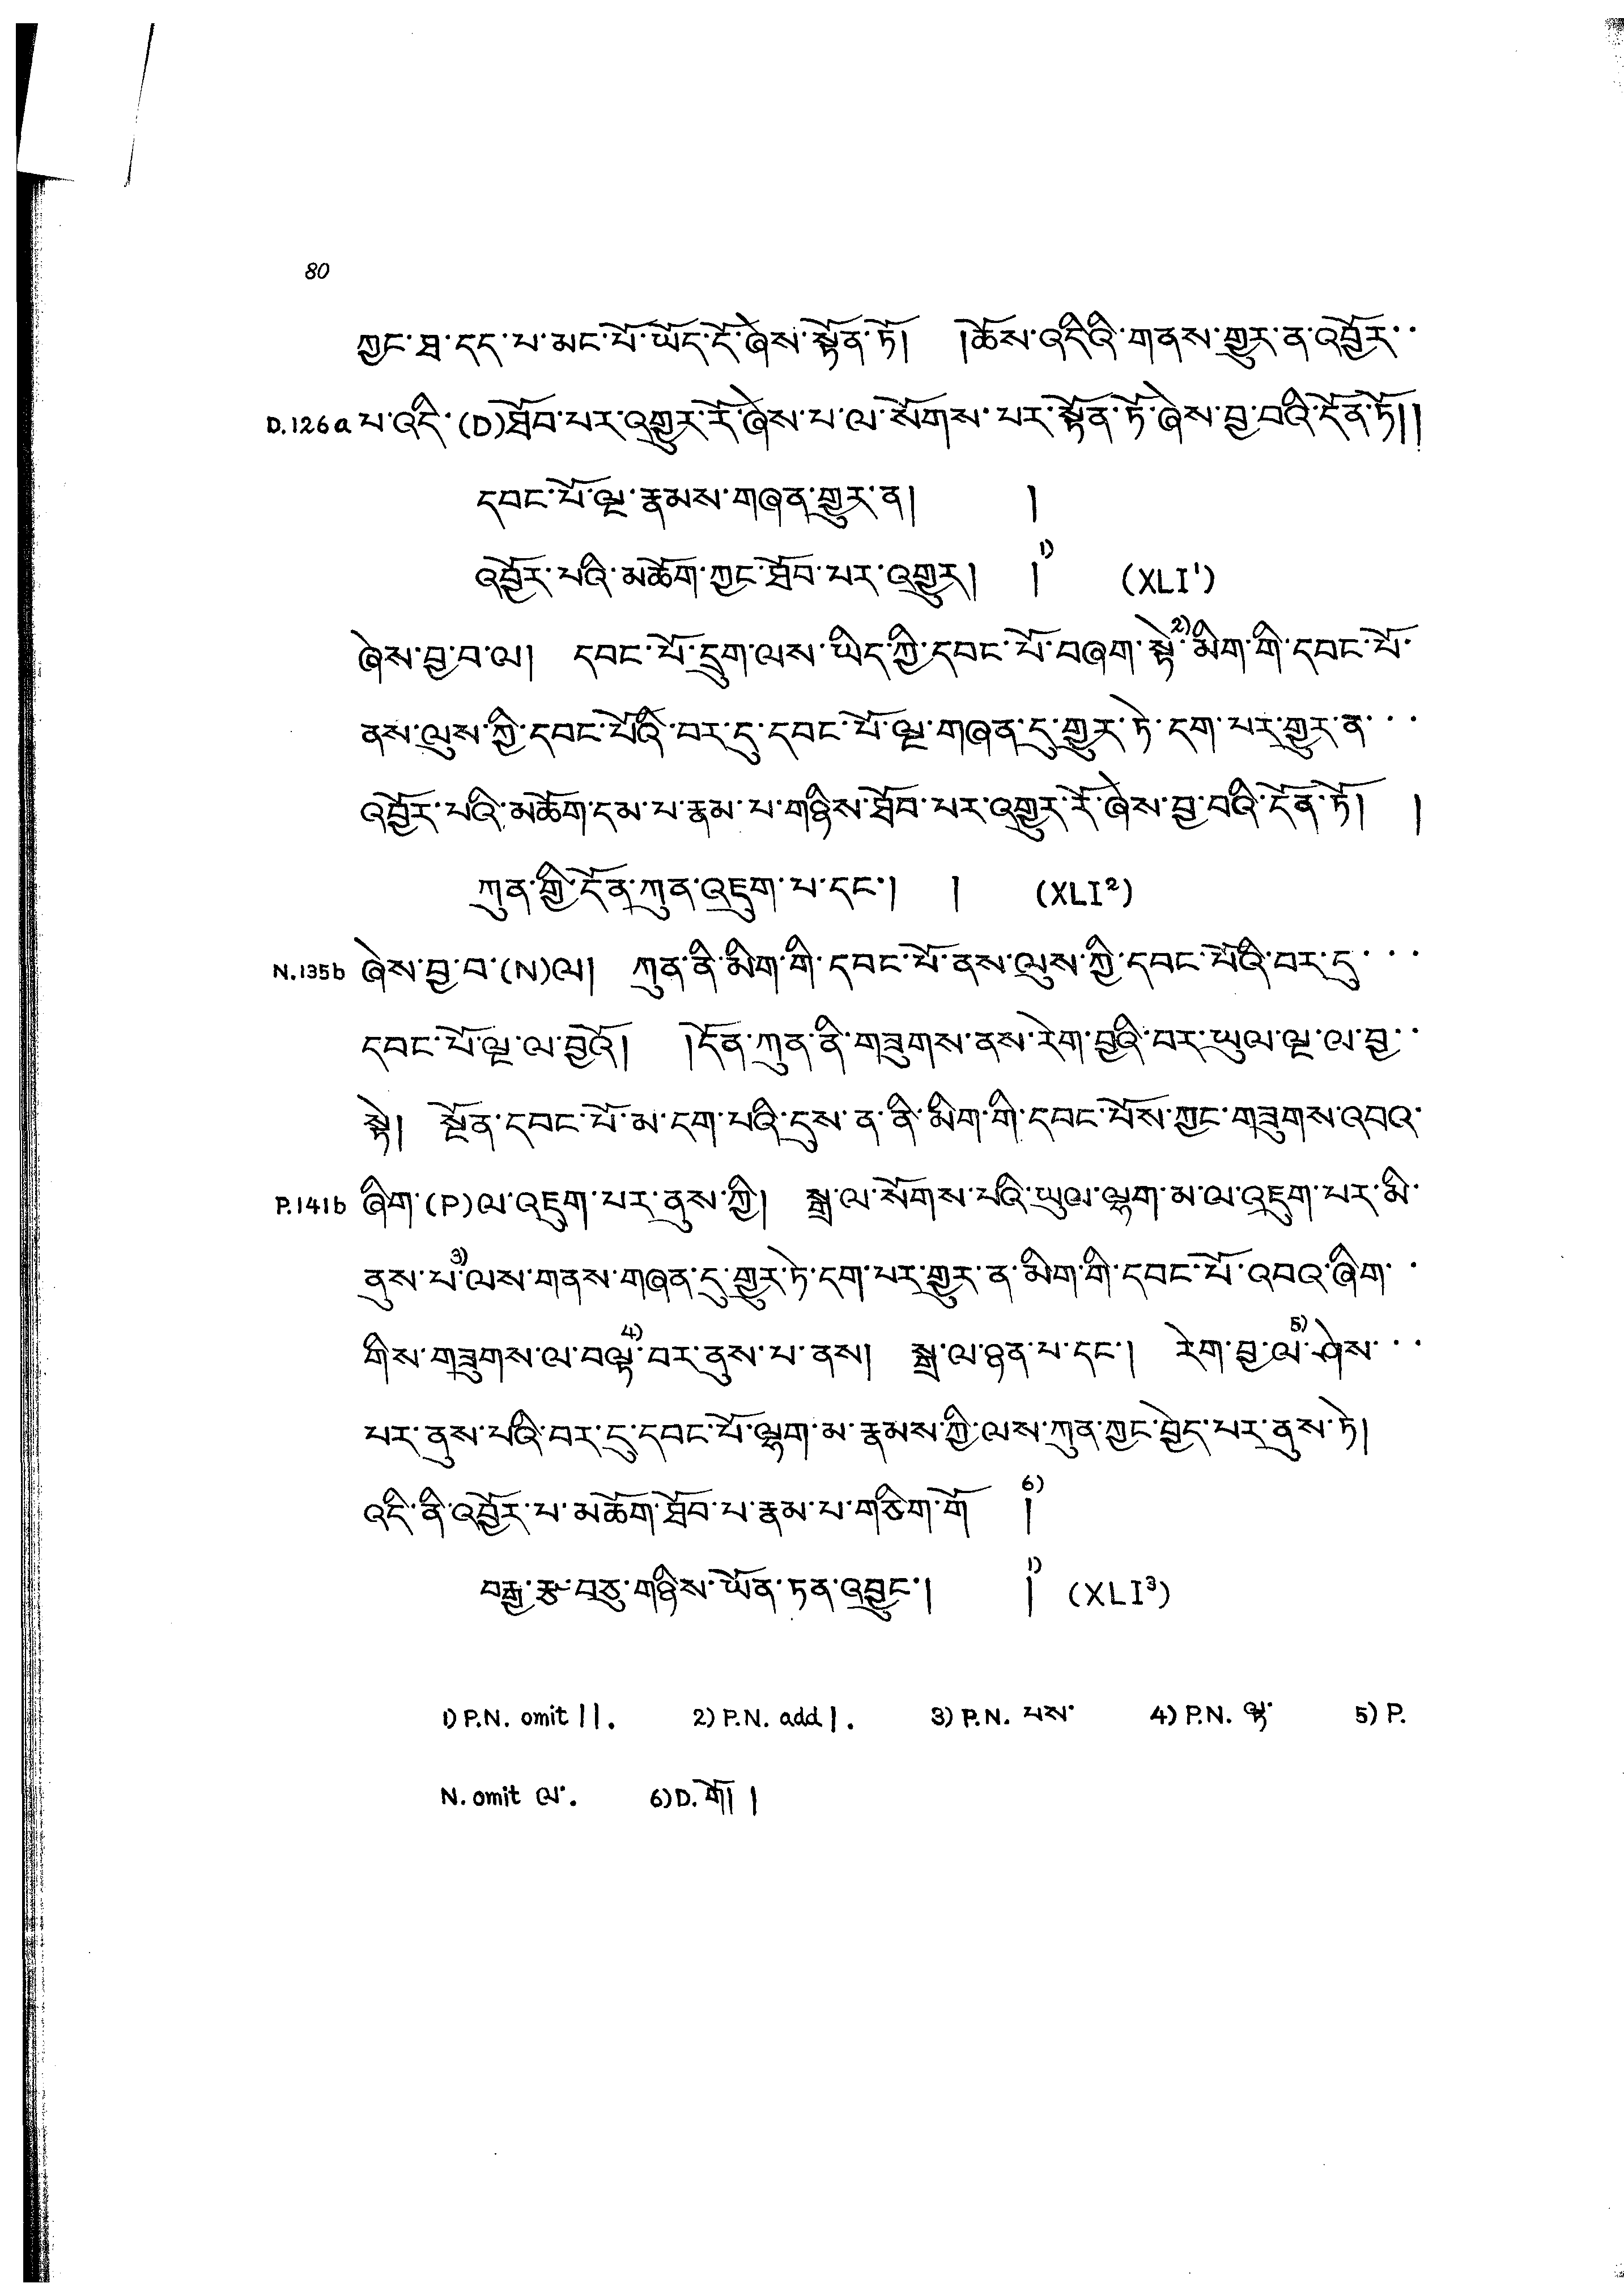 80
ཀྱང་ཐ་དད་པ་མང་པོ་ཡོད་དོ་ཞེས་སྟོན་ཏོ། །ཆོས་འདིའི་གནས་གྱུར་ན་འབྱོར་··
D.126a པ་འདི་(D)ཐོབ་པར་འགྱུར་རོ་ཞེས་པ་ལ་སོགས་པར་སྟོན་ཏོ་ཞེས་བྱ་བའི་དོན་ཏོ།།
དབང་པོ་ལྔ་རྣམས་གཞན་གྱུར་ན། །
འབྱོར་པའི་མཆོག་ཀྱང་ཐོབ་པར་འགྱུར། །1) (XLI¹)
ཞེས་བྱ་བ་ལ། དབང་པོ་དྲུག་ལས་ཡིད་ཀྱི་དབང་པོ་བཞག་སྟེ་2)མིག་གི་དབང་པོ་
ནས་ལུས་ཀྱི་དབང་པོའི་བར་དུ་དབང་པོ་ལྔ་གཞན་དུ་གྱུར་ཏེ་དག་པར་གྱུར་ན་···
འབྱོར་པའི་མཆོག་དམ་པ་རྣམ་པ་གཉིས་ཐོབ་པར་འགྱུར་རོ་ཞེས་བྱ་བའི་དོན་ཏོ། །
ཀུན་གྱི་དོན་ཀུན་འཇུག་པ་དང་། ། (XLI²)
N.135b ཞེས་བྱ་བ་(N)ལ། ཀུན་ནི་མིག་གི་དབང་པོ་ནས་ལུས་ཀྱི་དབང་པོའི་བར་དུ་···
དབང་པོ་ལྔ་ལ་བྱའོ། །དོན་ཀུན་ནི་གཟུགས་ནས་རེག་བྱའི་བར་ཡུལ་ལྔ་ལ་བྱ་··
སྟེ། སྔོན་དབང་པོ་མ་དག་པའི་དུས་ན་ནི་མིག་གི་དབང་པོས་ཀྱང་གཟུགས་འབའ་
P.141b ཞིག་(P)ལ་འཇུག་པར་ནུས་ཀྱི། སྒྲ་ལ་སོགས་པའི་ཡུལ་ལྷག་མ་ལ་འཇུག་པར་མི་
ནུས་པ་3)ལས་གནས་གཞན་དུ་གྱུར་ཏེ་དག་པར་གྱུར་ན་མིག་གི་དབང་པོ་འབའ་ཞིག་·
གིས་གཟུགས་ལ་བལྟ་4)བར་ནུས་པ་ནས། སྒྲ་ལ་ཉན་པ་དང་། རེག་བྱ་ལ་5)ཤེས་···
པར་ནུས་པའི་བར་དུ་དབང་པོ་ལྷག་མ་རྣམས་ཀྱི་ལས་ཀུན་ཀྱང་བྱེད་པར་ནུས་ཏེ།
འདི་ནི་འབྱོར་པ་མཆོག་ཐོབ་པ་རྣམ་པ་གཅིག་གོ །6)
བརྒྱ་རྩ་བཅུ་གཉིས་ཡོན་ཏན་འབྱུང་། །1) (XLI³)
1) P.N. omit །།. 2) P.N. add །. 3) P.N. པས་ 4) P.N. ལྟ་ 5) P.
N. omit ལ་. 6) D. གོ། །